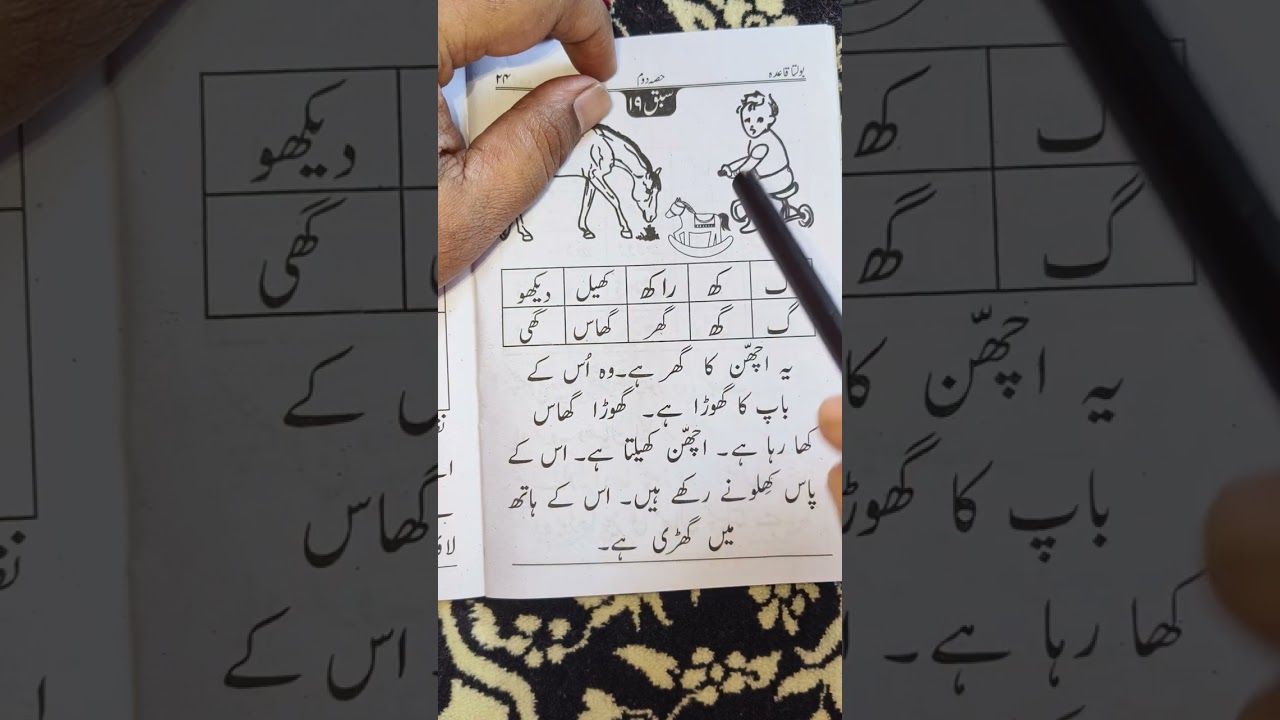 بولتا قاعدہ حصہ دوم ۲۴
سبق ۱۹
ک کھ راکھ کھیل دیکھو
گ گھ گھر گھاس گھی
یہ اچھّن کا گھر ہے۔ وہ اُس کے
باپ کا گھوڑا ہے۔ گھوڑا گھاس
کھا رہا ہے۔ اچھّن کھیلتا ہے۔ اس کے
پاس کھِلونے رکھے ہیں۔ اس کے ہاتھ
میں گھڑی ہے۔